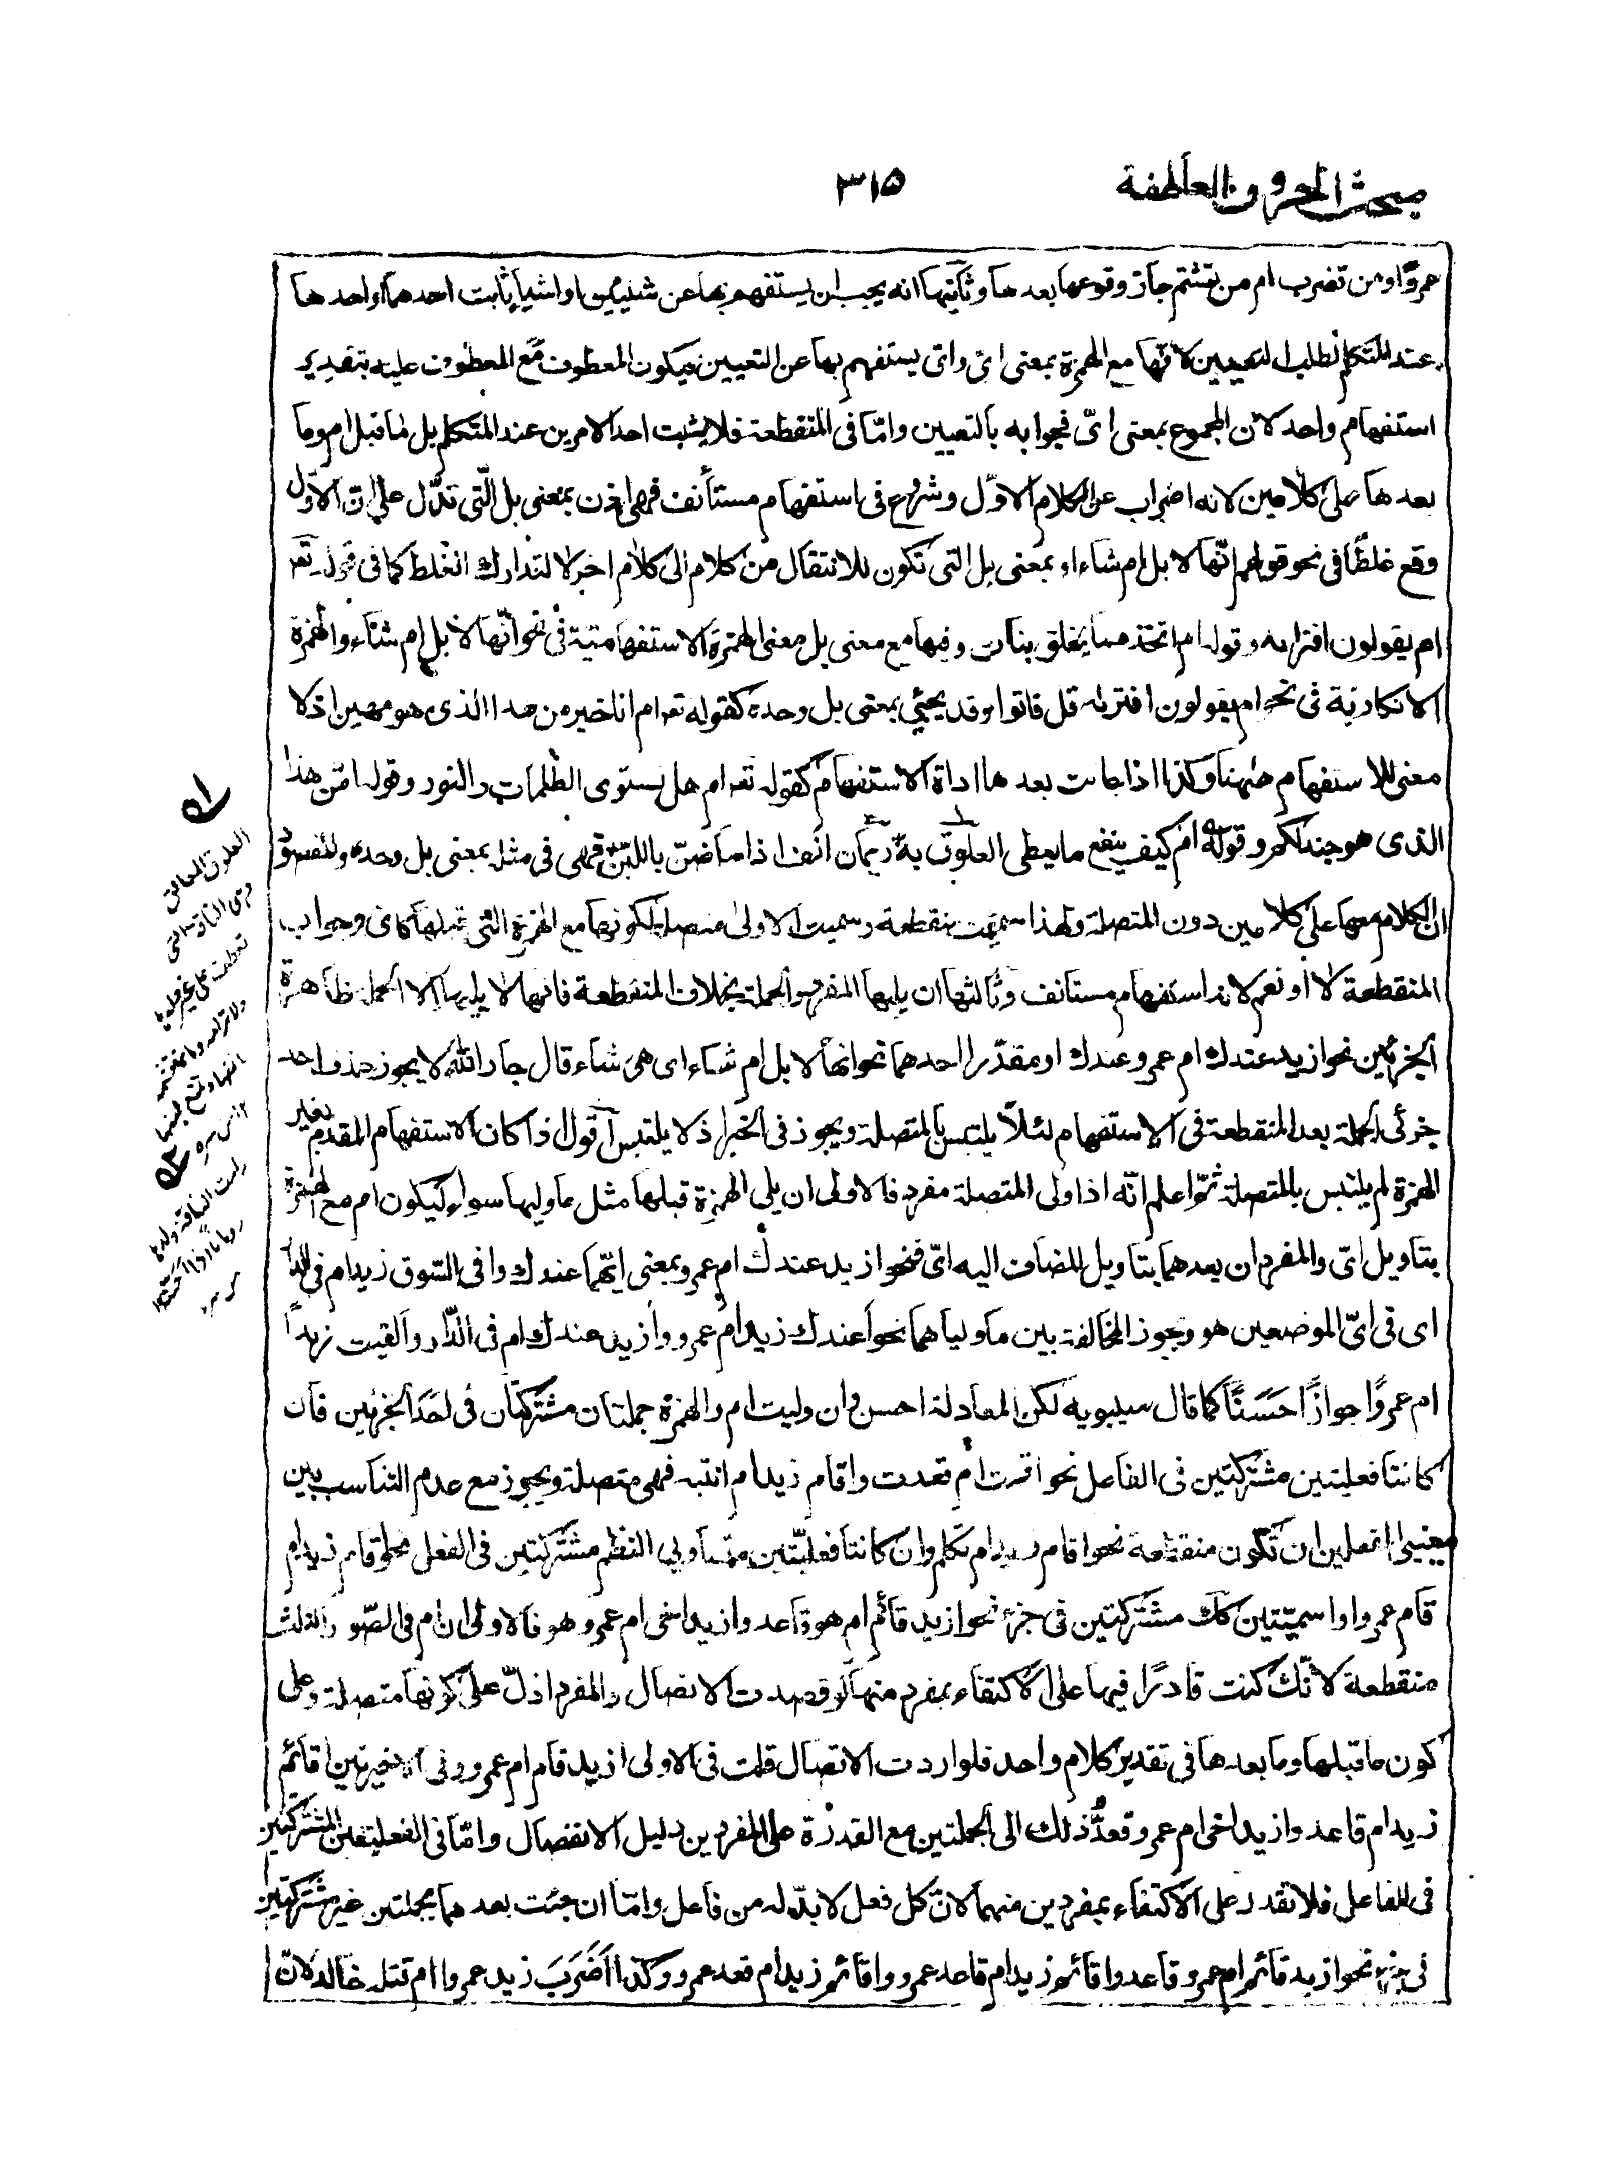 مبحث الحروف العاطفة
٣١٥
عمروًا ومن تضرب ام من تشتم جاز وقوعها بعد ها وثانيتها انه يجب ان يستفهم بها عن شيئين او اشياء ثابت احدهما او احد ها
عند المتكلم لطلب التعيين لانها مع الهمزة بمعنى اىّ واىّ يستفهم بها عن التعيين فيكون المعطوف مع المعطوف عليه بتقدير
استفهام واحد لان المجموع بمعنى اىّ فجوابه بالتعيين وامّا فى المنقطعة فلا يثبت احد الامرين عند المتكلم بل ما قبل ام وما
بعد ها على كلامين لانه اضراب عن الكلام الاوّل وشروع فى استفهام مستأنف فهى اذن بمعنى بل الّتى تدّل على انّ الاوّل
وقع غلطًا فى نحو قولهم انّها لا بل ام شاء او بمعنى بل التى تكون للانتقال من كلام الى كلام اخر لا لتدارك الغلط كما فى قوله تعـ
ام يقولون افتراىه وقوله ام اتخذ مما يخلق بنات وفيها مع معنى بل معنى الهمزة الاستفهامية فى نحو انّها لا بل ام شاء والهمزة
الانكارية فى نحو ام يقولون افتراىه قل فاتوا وقد يجئ بمعنى بل وحده كقوله تعـ ام انا خير من هذا الذى هو مهين اذ لا
معنى للاستفهام ههنا وكذا اذا جاءت بعد ها اداة الاستفهام كقوله تعـ ام هل تستوى الظلمات والنور وقوله امّن هذا
الذى هو جند لكم وقوله ام كيف ينفع ما يعطى العلوق به رئمان انف اذا ما ضنّ باللبن فهى فى مثله بمعنى بل وحده ولنفسوّ
ان الكلام معها على كلامين دون المتصلة ولهذا سميت منقطعة وسميت الاولى متصلة لكونها مع الهمزة التى قبلها كاىّ وجواب
المنقطعة لا او نعم لانه استفهام مستانف وثالثها ان يليها المفرد والجملة بخلاف المنقطعة فانها لا يليها الا الجملة ظاهرة
الجزئين نحو ازيد عندك ام عمرو عندك او مقدّرا احدهما نحو انها لا بل ام شاء اى هى شاء قال جار الله لا يجوز حذف احد
جزئى الجملة بعد المنقطعة فى الاستفهام لئلّا يلتبس بالمتصلة ويجوز فى الخبر اذ لا يلتبس اقول اذا كان الاستفهام المقدم بغير
الهمزة لم يلتبس بالمتصلة ثمّ اعلم انّه اذا ولى المتصلة مفرد فالاولى ان يلى الهمزة قبلها مثل ما وليها سواء ليكون ام مع الهمزة
بتاويل اىّ والمفردان بعدهما بتاويل المضاف اليه اىّ فنحو ازيد عندك ام عمرو بمعنى ايّهما عندك وا فى السّوق زيد ام فى الدار
اى فى اىّ الموضعين هو ويجوز المخالفة بين ما وليا هما نحو اعندك زيد ام عمرو وأزيد عندك ام فى الدّار وألقيت زيدًا
ام عمروًا جوازًا حسنًا كما قال سيبويه لكن المعادلة احسن وان وليت ام والهمزة جملتان مشتركتان فى احد الجزئين فان
كانتا فعليتين مشتركتين فى الفاعل نحو اقمت ام قعدت واقام زيد ام انتبه فهى متصلة ويجوز مع عدم التناسب بين
معنيى الفعلين ان تكون منقطعة نحو اقام زيد ام تكلم وان كانتا فعليّتين متساويى النظم مشتركتين فى الفعل نحو اقام زيد ام
قام عمرو او اسميّتين كذلك مشتركتين فى جزء نحو ازيد قائم ام هو قاعد وازيد اخى ام عمرو هو فالاولى ان ام فى الصّور الثلث
منقطعة لانّك كنت قادرًا فيها على الاكتفاء بمفرد منها لو قصدت الاتصال والمفرد ادلّ على كونها متصلة وعلى
كون ما قبلها وما بعد ها فى تقدير كلام واحد فلو اردت الاتصال قلت فى الاولى ازيد قام ام عمرو وفى الاخيرتين اقائم
زيد ام قاعد وازيد اخى ام عمرو فعدّ ذلك الى الجملتين مع القدرة على المفردين دليل الانفصال وامّا فى الفعليتين المشتركتين
فى الفاعل فلا تقدر على الاكتفاء بمفردين منهما لانّ كل فعل لا بدّ له من فاعل وامّا ان جئت بعد هما بجملتين غير مشتركتين
فى جزء نحو ازيد قائم ام عمرو قاعد واقائم زيد ام قاعد عمرو واقائم زيد ام قعد عمرو وكذا اضَرَبَ زيد عمروا ام قتل خالد لانّ
العلوق المعالق
وهى الناقة التى
تعطف على غير ولدها
ولا ترأمه وانما تشمه
بانفها وتمنع لبنها
رئمت الناقة ولدها
رئمانا اذا احبّته